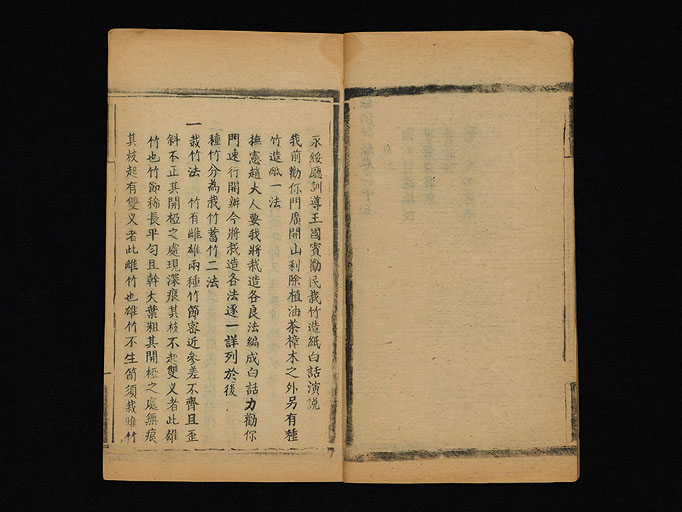 永綏廳訓導王國賓勸民栽竹造紙白話演說
我前勸你門廣開山利除植油茶樟木之外另有種
竹造紙一法
撫憲趙大人要我將栽造各良法編成白話力勸你
門速行開辦今將栽造各法逐一詳列於後
種竹分為栽竹蓄竹二法
一栽竹法 竹有雌雄兩種竹節密近參差不齊且歪
斜不正其開椏之處現深痕其枝不起雙义者此雄
竹也竹節稀長平勻且幹大葉粗其開椏之處無痕
其枝起有雙义者此雌竹也雄竹不生筍須栽雌竹